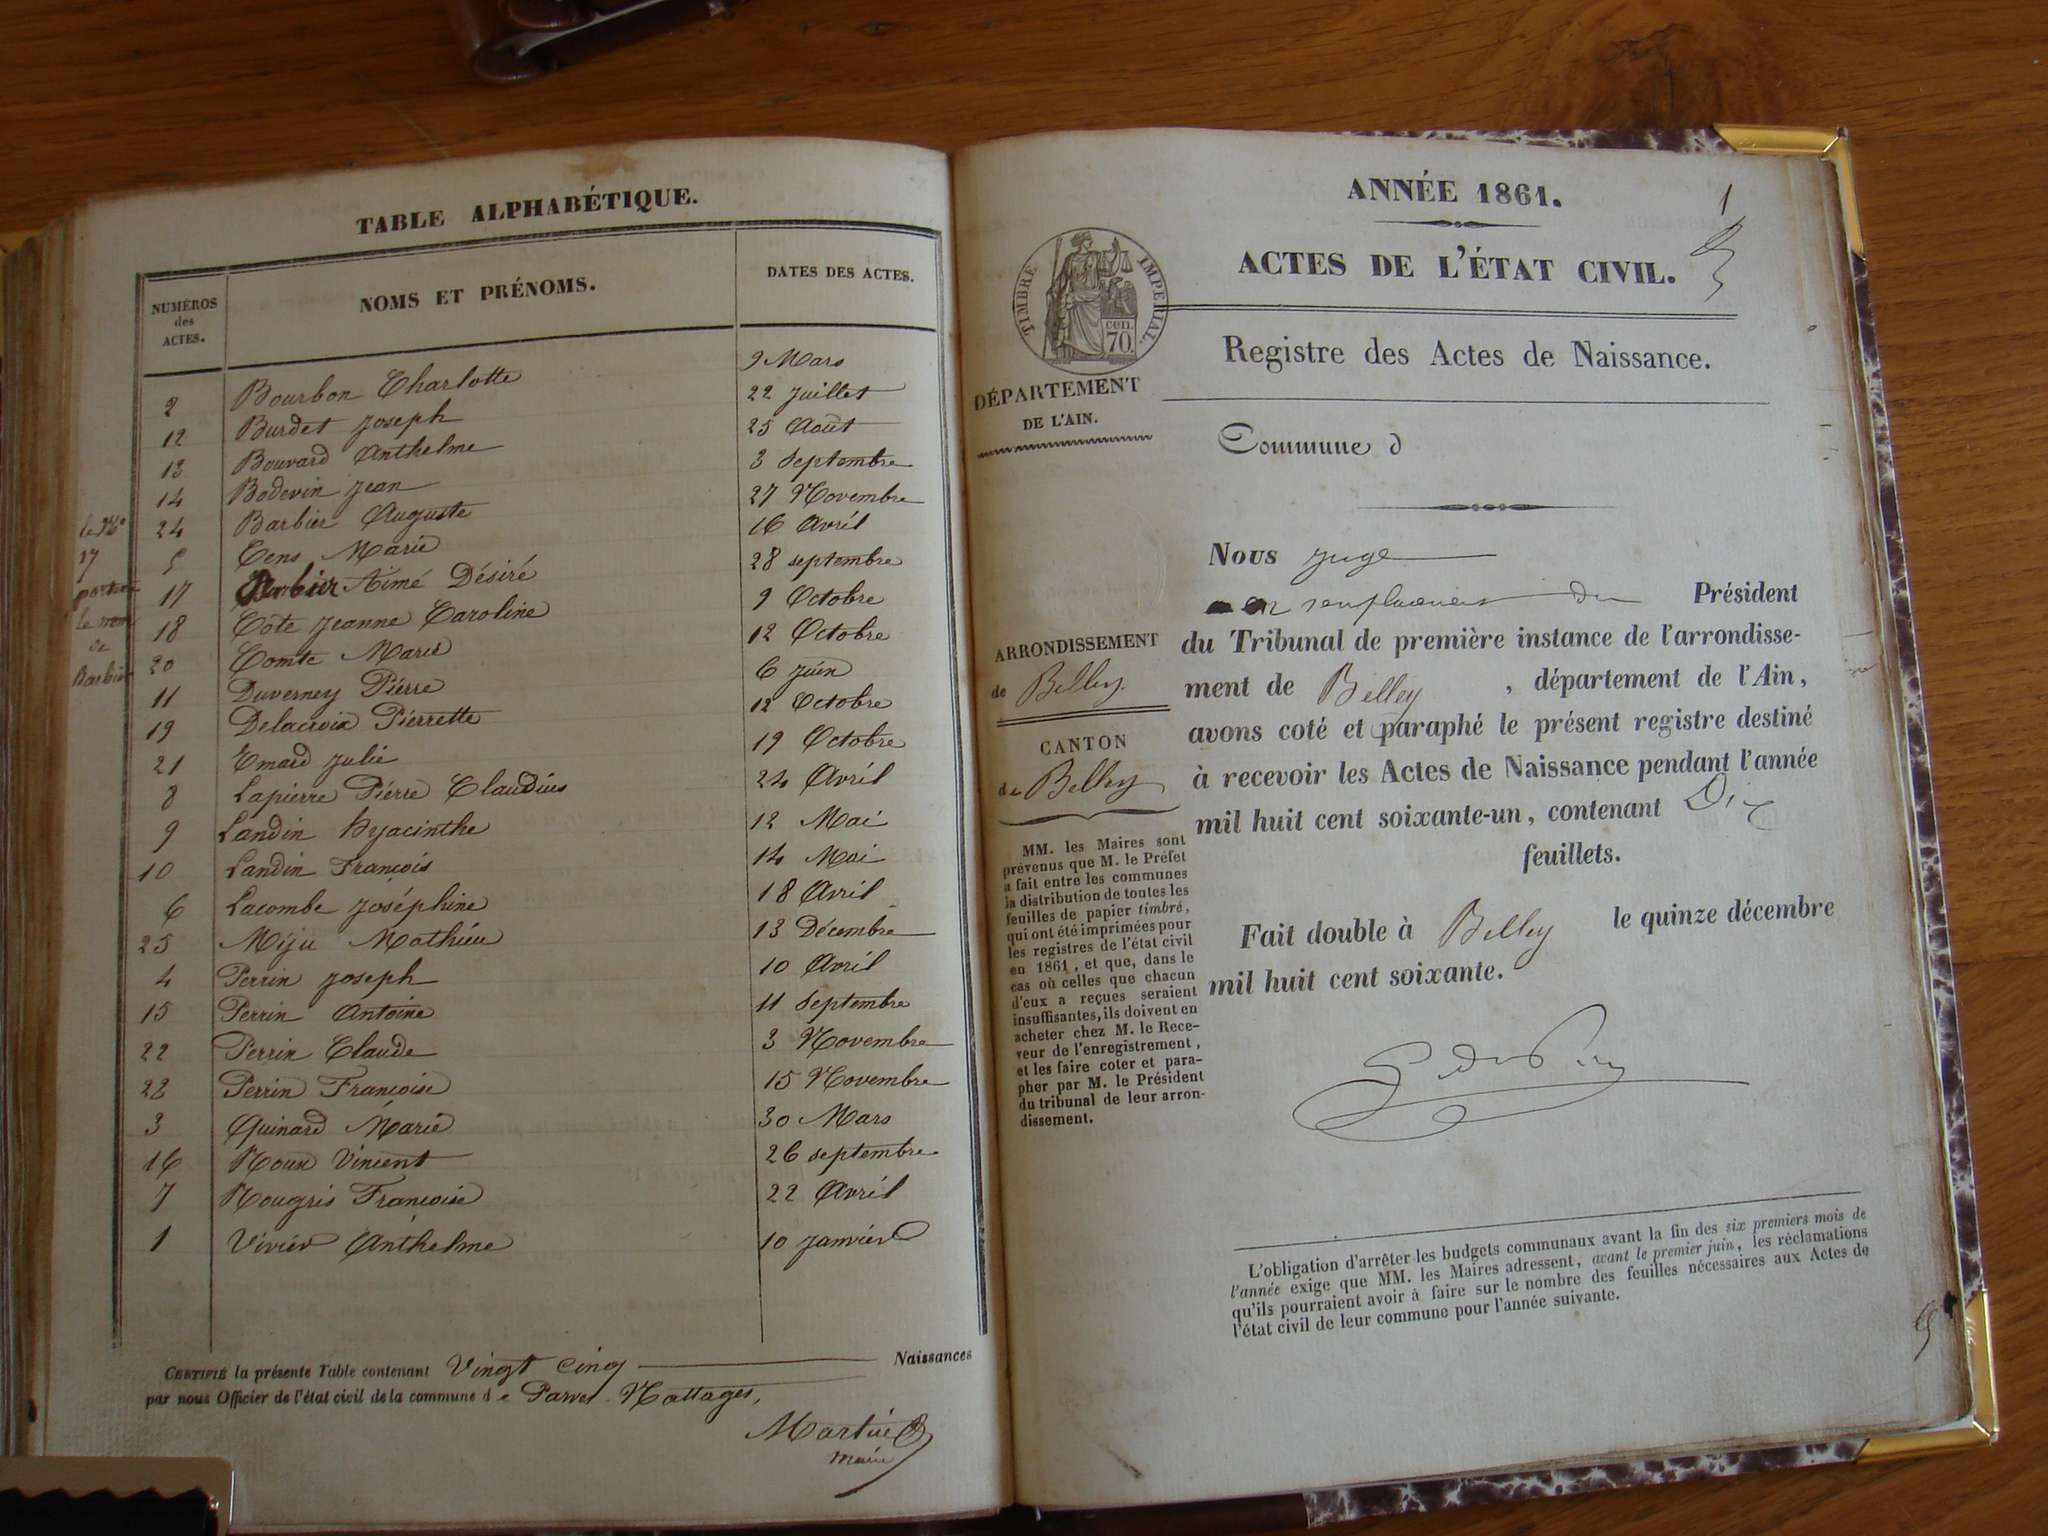 TABLE ALPHABÉTIQUE.
NUMÉROS des ACTES. NOMS ET PRÉNOMS. DATES DES ACTES.
2 Bourbon Charlotte 9 Mars
12 Burdet Joseph 22 Juillet
13 Bouvard Anthelme 25 Août
14 Bodevin Jean 3 Septembre
24 Barbier Auguste 27 Novembre
5 Cens Marie 16 Avril
17 Barbier Aimé Désiré 28 septembre
18 Côte Jeanne Caroline 9 Octobre
20 Comte Marie 12 Octobre
11 Duverney Piérre 6 Juin
19 Delacroix Piérrette 12 Octobre
21 Emard Julie 19 Octobre
8 Lapierre Piérre Claudius 24 Avril
9 Landin hyacinthe 12 Mai
10 Landin François 14 Mai
6 Lacombe Joséphine 18 Avril
25 Miju Mathieu 13 Décembre
4 Perrin Joseph 10 Avril
15 Perrin Antoine 11 Septembre
22 Perrin Claude 3 Novembre
23 Perrin Françoise 15 Novembre
3 Quinard Marie 30 Mars
16 Roux Vincent 26 septembre
7 Rougris Francoise 22 Avril
1 Viviér Anthelme 10 Janviér
le N°
17
porte
le nom
de
Barbier
CERTIFIÉ la présente Table contenant Vingt Cinq Naissances
par nous Officier de l'état civil de la commune de Parves Nattages,
Martin
maire
ANNÉE 1861.
1
ACTES DE L'ÉTAT CIVIL.
TIMBRE IMPÉRIAL.
cen.
70.
Registre des Actes de Naissance.
DÉPARTEMENT
DE L'AIN.
Commune d
Nous Juge
en remplacement du Président
du Tribunal de première instance de l'arrondisse-
ment de Belley, département de l'Ain,
avons coté et paraphé le présent registre destiné
à recevoir les Actes de Naissance pendant l'année
mil huit cent soixante-un, contenant Dix
feuillets.
Fait double à Belley le quinze décembre
mil huit cent soixante.
ARRONDISSEMENT
de Belley.
CANTON
de Belley
MM. les Maires sont
prévenus que M. le Préfet
a fait entre les communes
la distribution de toutes les
feuilles de papier timbré,
qui ont été imprimées pour
les registres de l'état civil
en 1861, et que, dans le
cas où celles que chacun
d'eux a reçues seraient
insuffisantes, ils doivent en
acheter chez M. le Rece-
veur de l'enregistrement,
et les faire coter et para-
pher par M. le Président
du tribunal de leur arron-
dissement.
L'obligation d'arrêter les budgets communaux avant la fin des six premiers mois de
l'année exige que MM. les Maires adressent, avant le premier juin, les réclamations
qu'ils pourraient avoir à faire sur le nombre des feuilles nécessaires aux Actes de
l'état civil de leur commune pour l'année suivante.